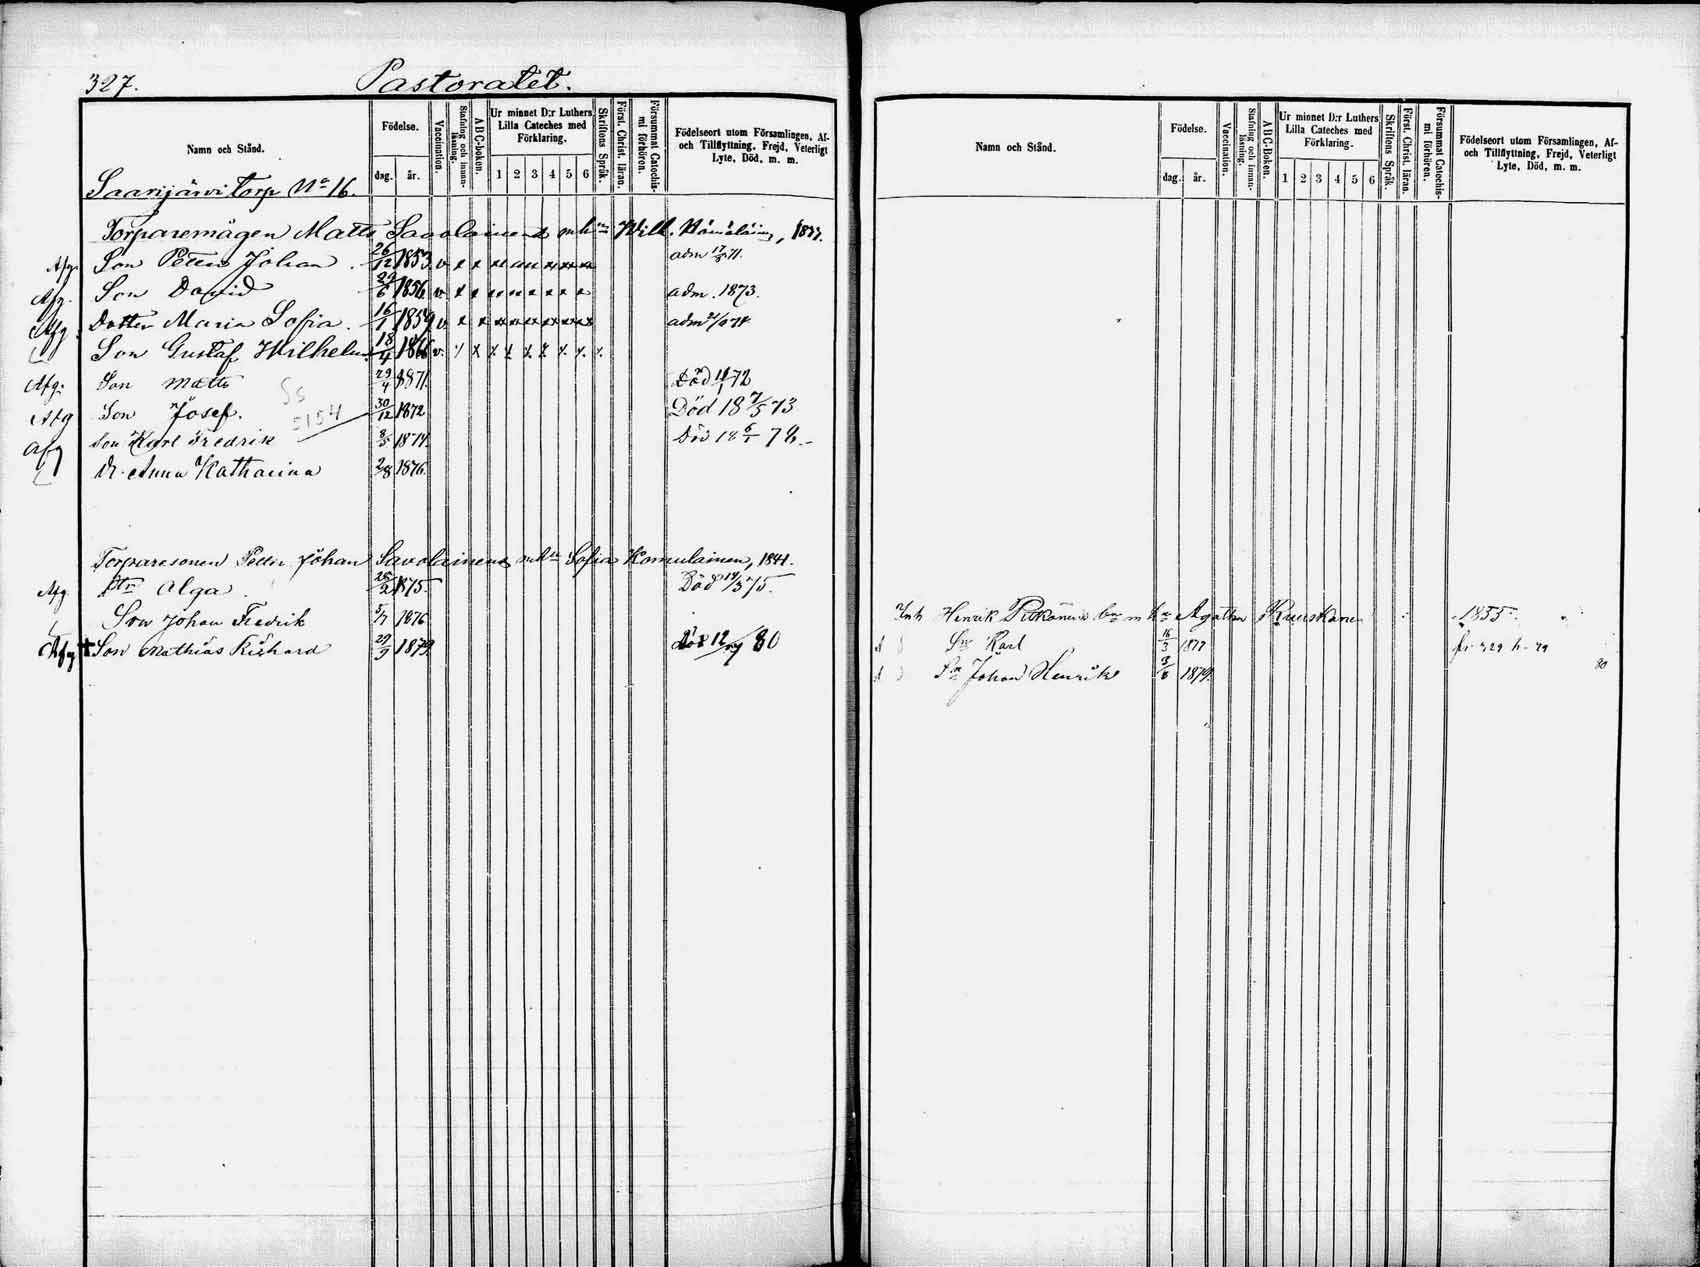 327.
Pastoratet.
Namn och Stånd.
Födelse.
dag. år.
Vaccination.
Stafning och innan-läsning.
ABC-boken.
Ur minnet D:r Luthers Lilla Cateches med Förklaring.
1 2 3 4 5 6
Skriftens Språk.
Först. Christ. läran.
Försummat Catechis-mi förhören.
Födelseort utom Församlingen, Af- och Tillflyttning, Frejd, Veterligt Lyte, Död, m. m.
Saarijärvi Torp No 16.
Torparemågen Matts Savolainens mhn Wilh. Hämäläinen, 1833.
Afg. Son Petter Johan. 26/12 1853 v x x adm 17/5 71.
Afg. Son David 29/6 1856 v x x adm. 1873.
Afg Dotter Maria Sofia. 16/1 1859 v x x
Son Gustaf Wilhelm 18/4 1866 v. x x x x x x x x x
Afg. Son Matts 29/4 1871. Död 72
Afg Son Josef. 30/12 1872 Död 18 7/5 73
Ss 5154
Afg Son Karl Fredrik 8/5 1874. Död 18 6/1 78.
Dr. Anna Katharina 2/8 1876.
Torparesonen Petter Johan Savolainens mhn Sofia Komulainen, 1841.
Afg. Dtr Alga. 1875. Död 75.
Son Johan Fredrik 5/7 1876
Afg + Son Mathias Rikhard 29/9 1879. Död 12/7 80
Namn och Stånd.
Födelse.
dag. år.
Vaccination.
Stafning och innan-läsning.
ABC-Boken.
Ur minnet D:r Luthers Lilla Cateches med Förklaring.
1 2 3 4 5 6
Skriftens Språk.
Först. Christ. läran.
Försummat Catechis-mi förhören.
Födelseort utom Församlingen, Af- och Tillflyttning, Frejd, Veterligt Lyte, Död, m. m.
Inh Henrik mhn Agatha Ruuskanen 1855.
Sn Karl 16/3 1877 fr 329 h. 79
Sn Johan Henrik 3/6 1879. 80